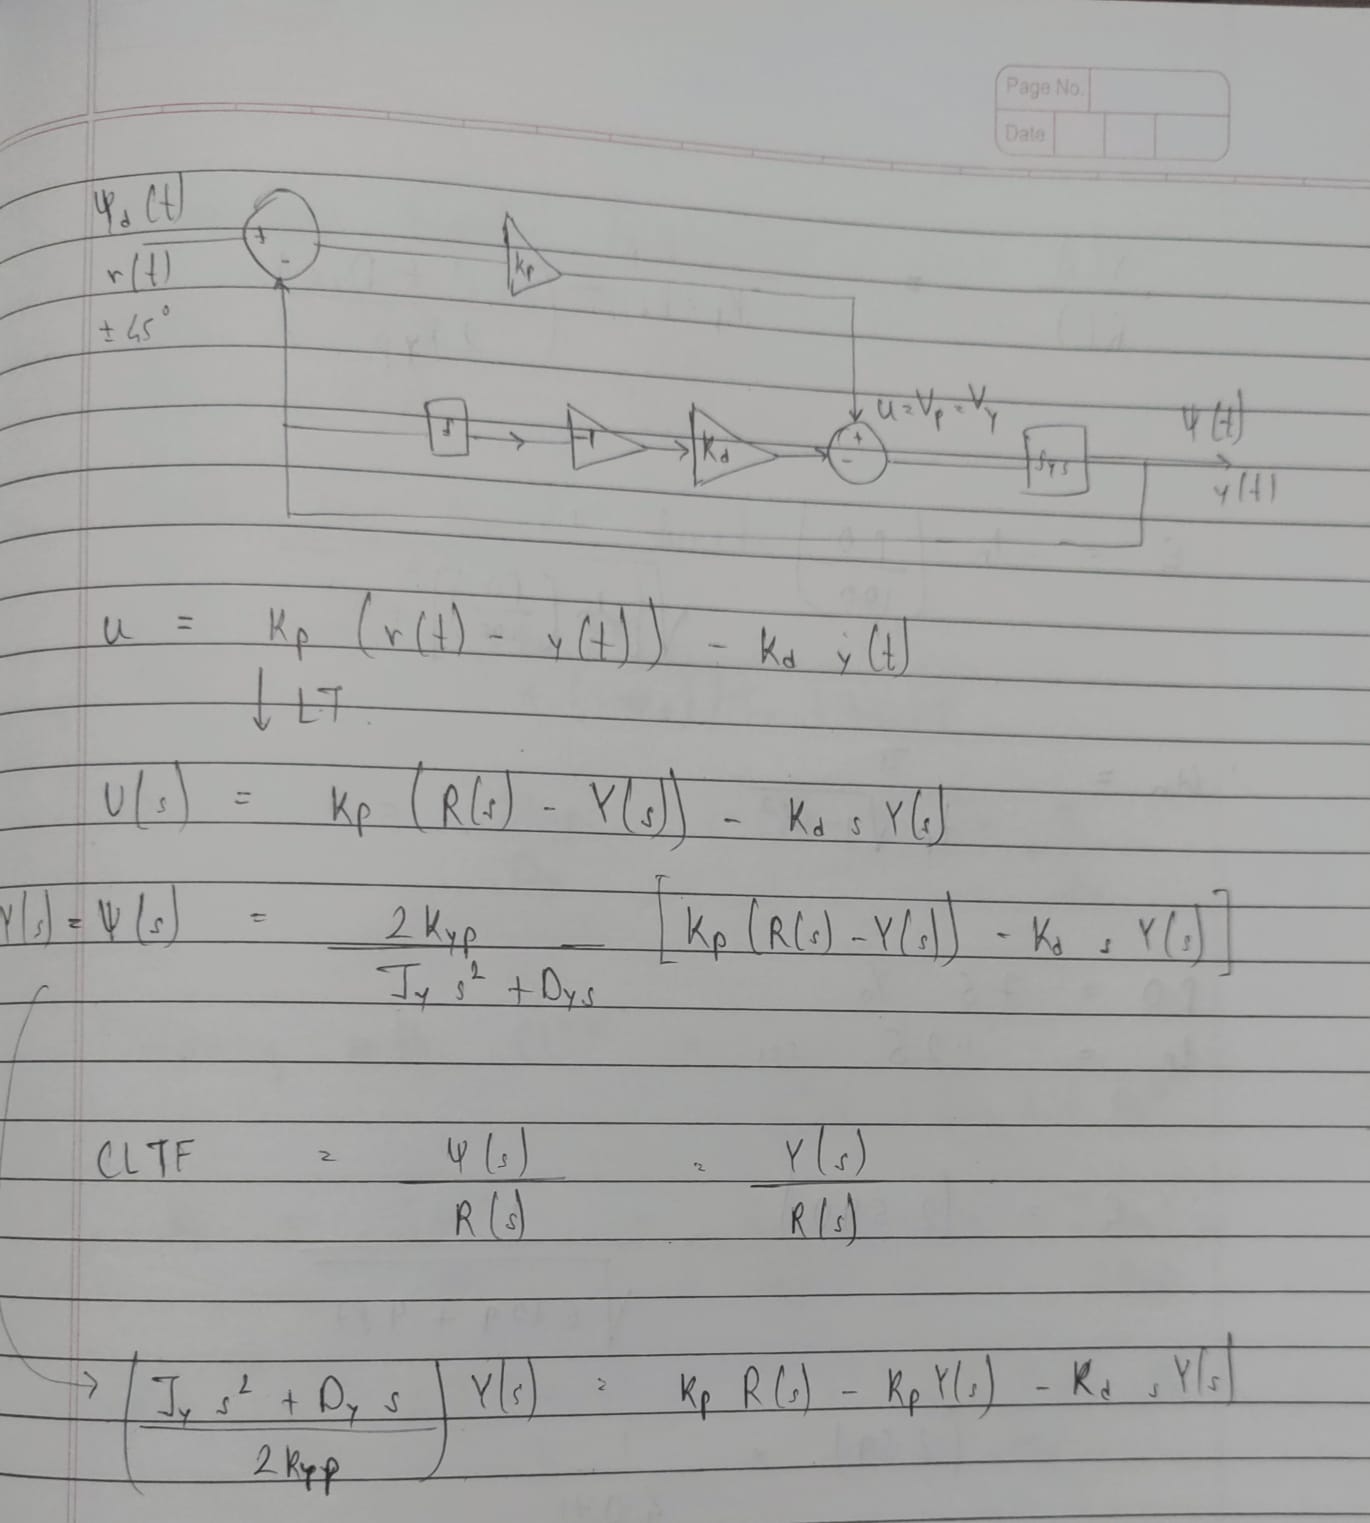 Page No.
Date
ψd (t)
r(t)
± 45°
+
-
Kp
s
-1
Kd
+
-
u = Vp = Vy
sys
ψ(t)
y(t)
u = Kp (r(t) - y(t)) - Kd ẏ(t)
↓ LT
U(s) = Kp (R(s) - Y(s)) - Kd s Y(s)
Y(s) = ψ(s) = 2 Kyp / (Jy s² + Dy s) [Kp (R(s) - Y(s)) - Kd s Y(s)]
CLTF = ψ(s) / R(s) = Y(s) / R(s)
→ (Jy s² + Dy s / 2 Kyp) Y(s) = Kp R(s) - Kp Y(s) - Kd s Y(s)